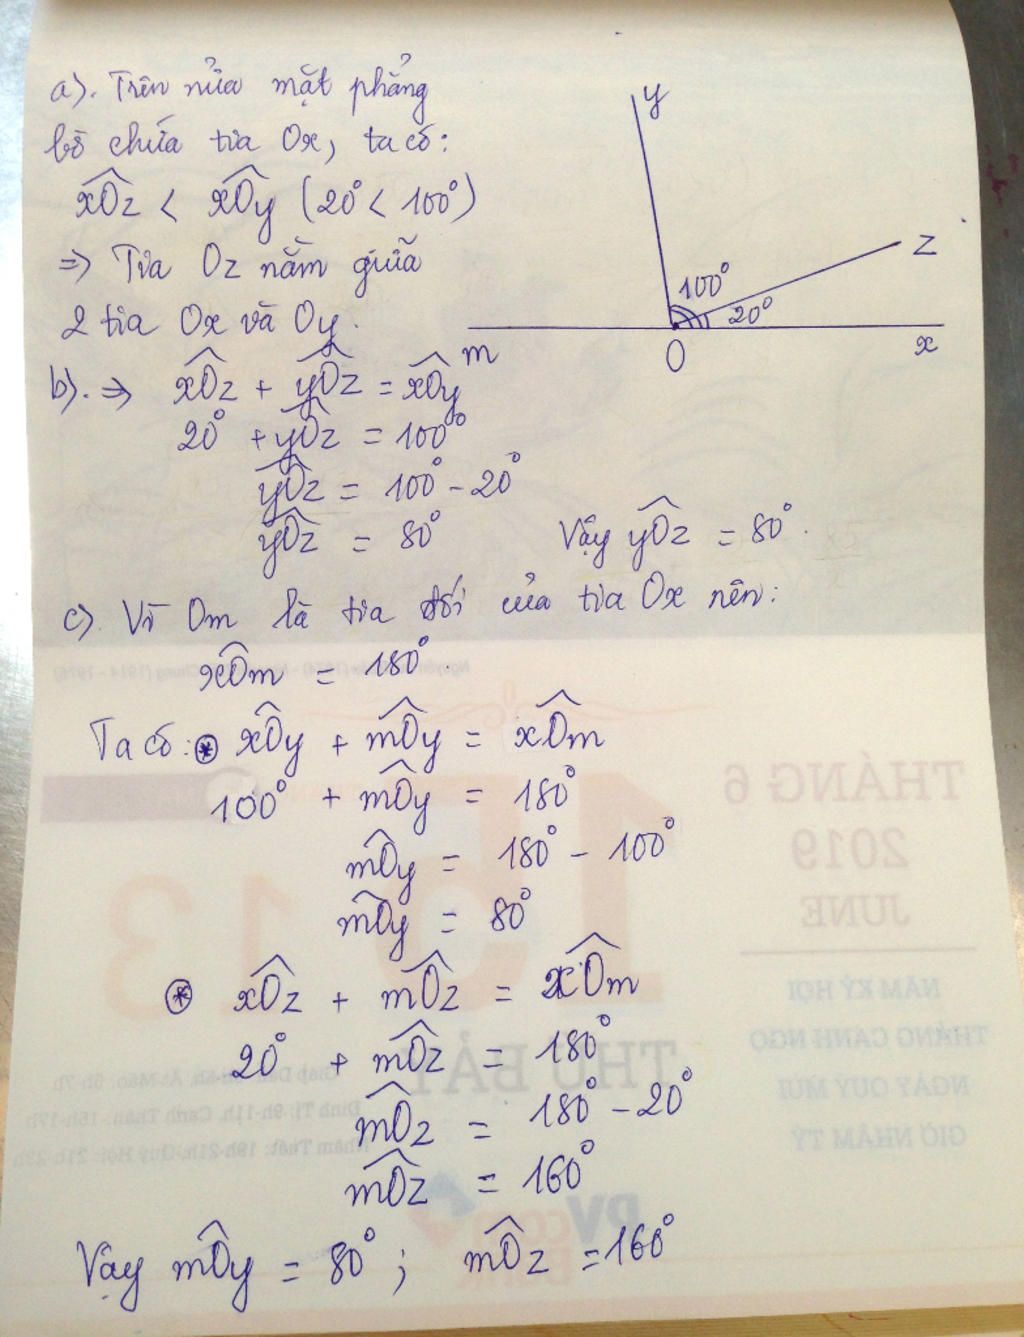 a). Trên nửa mặt phẳng
bờ chứa tia Ox, ta có:
xOz < xOy (20° < 100°)
=> Tia Oz nằm giữa
2 tia Ox và Oy.
y
z
100°
20°
m
O
x
b). => xOz + yOz = xOy
20° + yOz = 100°
yOz = 100° - 20°
yOz = 80° Vậy yOz = 80°.
c). Vì Om là tia đối của tia Ox nên:
xOm = 180°.
Ta có: * xOy + mOy = xOm
100° + mOy = 180°
mOy = 180° - 100°
mOy = 80°
* xOz + mOz = xOm
20° + mOz = 180°
mOz = 180° - 20°
mOz = 160°
Vậy mOy = 80° ; mOz = 160°
THÁNG 6
2019
JUNE
NĂM KỶ HỢI
THÁNG CANH NGỌ
NGÀY QUÝ MÙI
GIỜ NHÂM TÝ
THỨ BẢY
PV
com
Bank